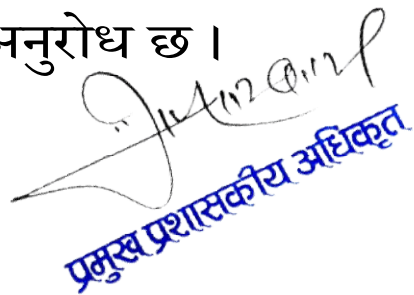 अनुरोध छ ।
प्रमुख प्रशासकीय अधिकृत